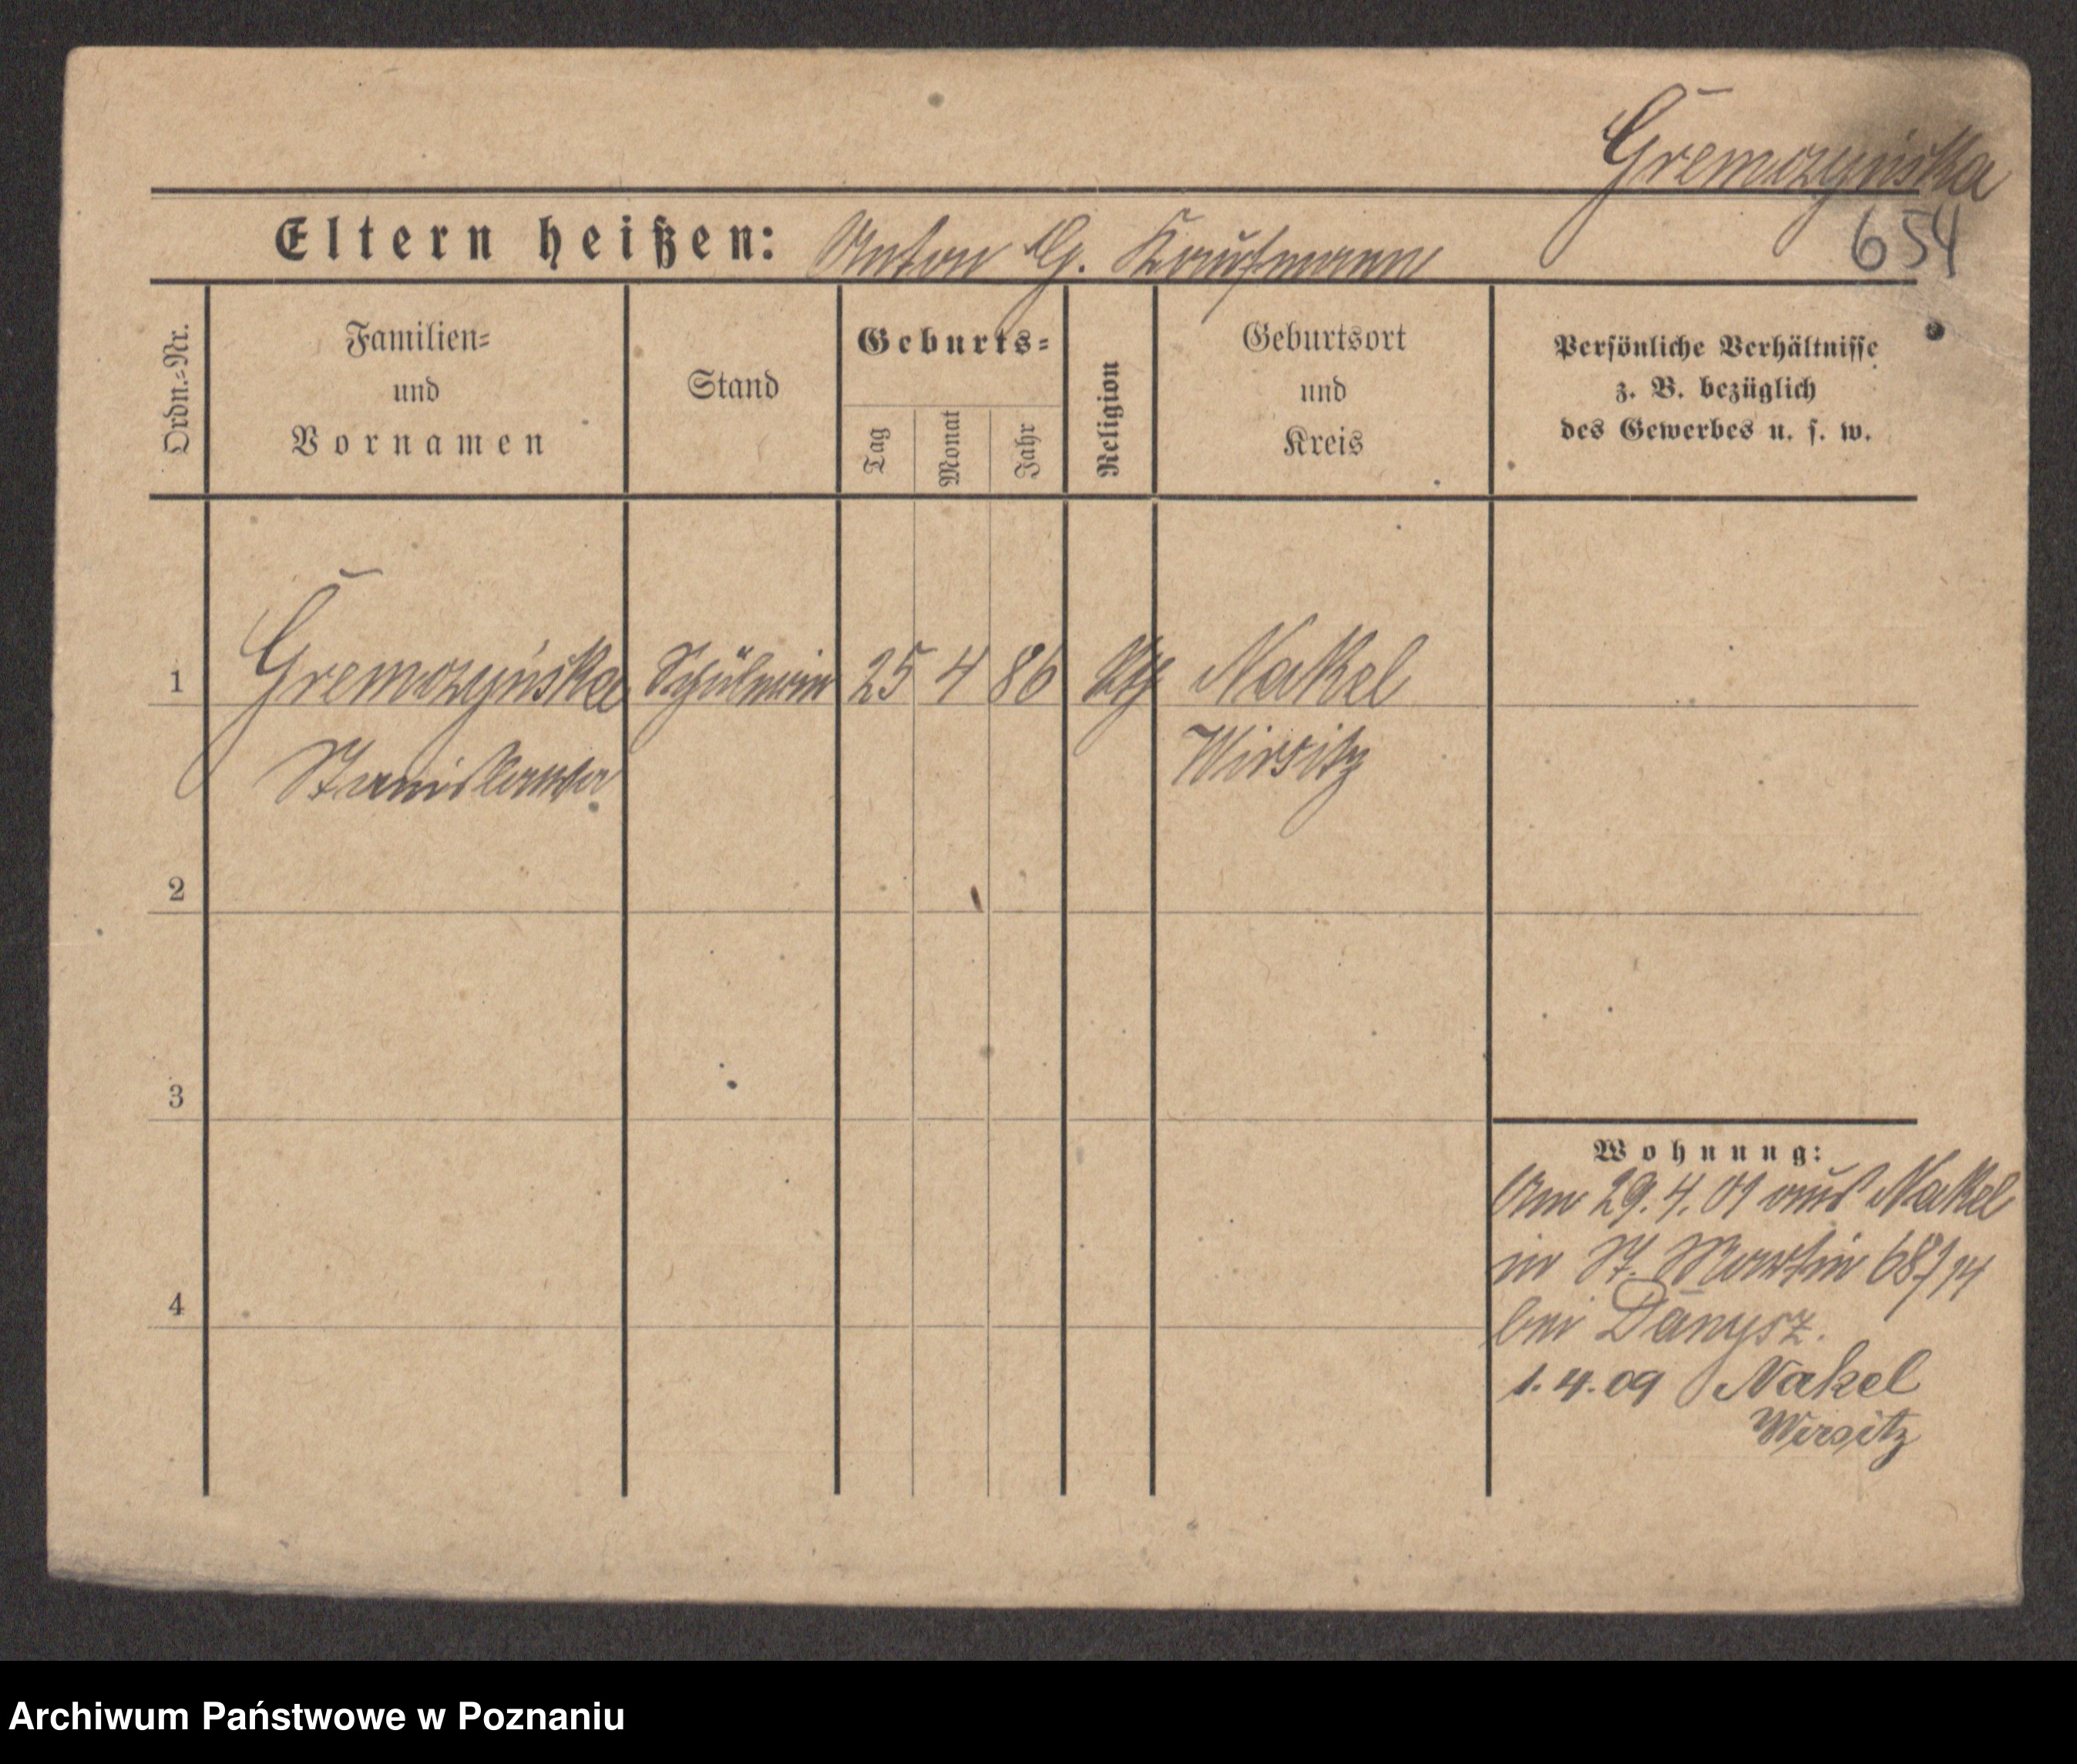 Gremczyńska
654
Eltern heißen: Anton G. Kaufmann
Ordn.-Nr.
Familien-
und
Vornamen
Stand
Geburts-
Tag
Monat
Jahr
Religion
Geburtsort
und
Kreis
Persönliche Verhältnisse
z. B. bezüglich
des Gewerbes u. s. w.
1 Gremczyńska Schülerin 25 4 86 Kth Nakel
Stanislawa Wirsitz
2
3
4
Wohnung:
Am 29.4.01 aus Nakel
in St. Martin 68
bei Danysz.
1.4.09 Nakel
Wirsitz
Archiwum Państwowe w Poznaniu